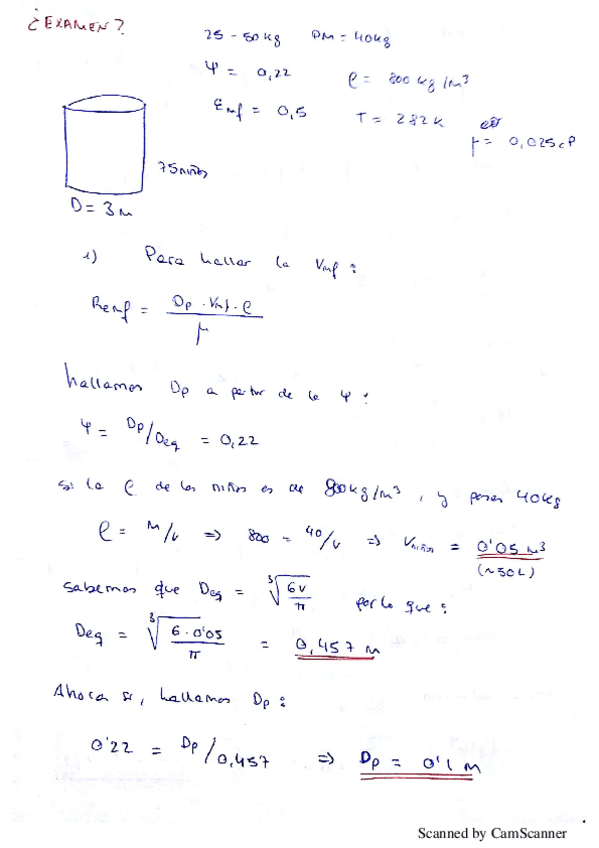 ¿EXAMEN?
25 - 50kg PM = 40kg
Ψ = 0,22 ρ = 800 kg/m³
Emf = 0,5 T = 282K
μ = 0,025 cP
75 niños
D = 3m
1) Para hallar la Vmf :
Remf = Dp · Vmf · ρ / μ
hallamos Dp a partir de la Ψ :
Ψ = Dp/Deq = 0,22
si la ρ de los niños es de 800kg/m³, y pesan 40kg
ρ = M/V => 800 = 40/V => Vniños = 0'05 m³
(~50L)
sabemos que Deq = ³√(6V/π) por lo que :
Deq = ³√(6·0'05/π) = 0,457 m
Ahora sí, hallamos Dp :
0'22 = Dp/0,457 => Dp = 0'1 m
Scanned by CamScanner